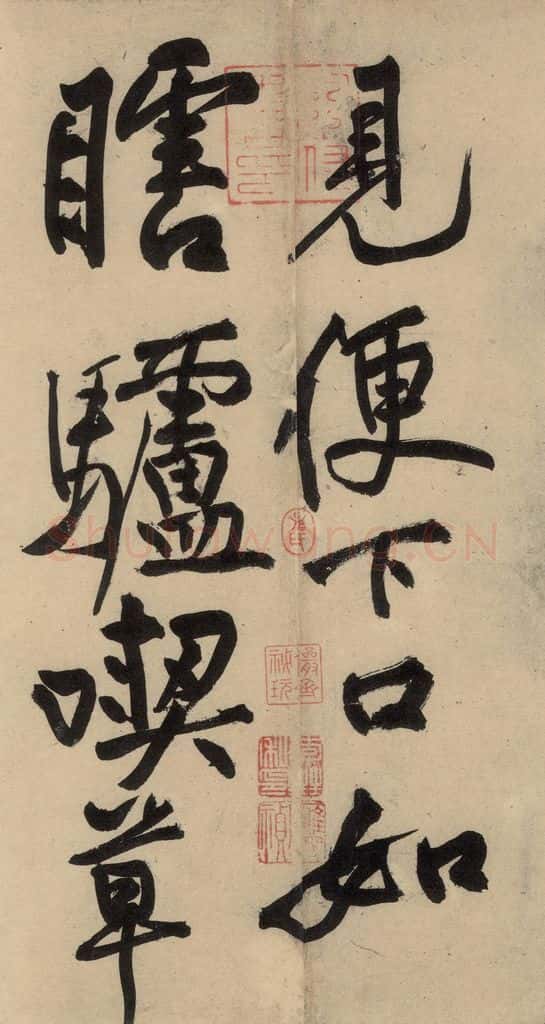 見便下口如
瞎驢喫草
Shufawang.CN